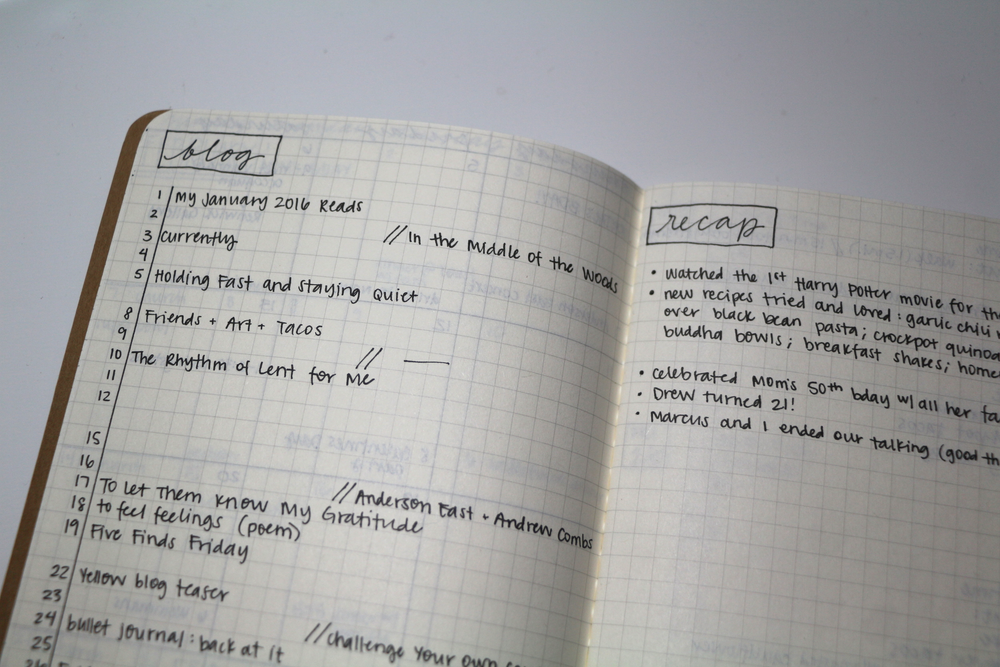 blog
1 My January 2016 Reads
2
3 Currently // In the Middle of the Woods
4
5 Holding Fast and Staying Quiet
8 Friends + Art + Tacos
9
10 The Rhythm of Lent for Me // —
11
12
15
16
17 To Let Them Know My Gratitude // Anderson East + Andrew Combs
18 to feel feelings (poem)
19 Five Finds Friday
22 Yellow blog teaser
23
24 bullet journal: back at it // challenge your own
25
26
recap
• watched the 1st Harry Potter movie for
• new recipes tried and loved: garlic chili
over black bean pasta; crockpot quinoa
buddha bowls; breakfast shakes;
• celebrated Mom's 50th bday w/ all her
• Drew turned 21!
• Marcus and I ended our talking (good